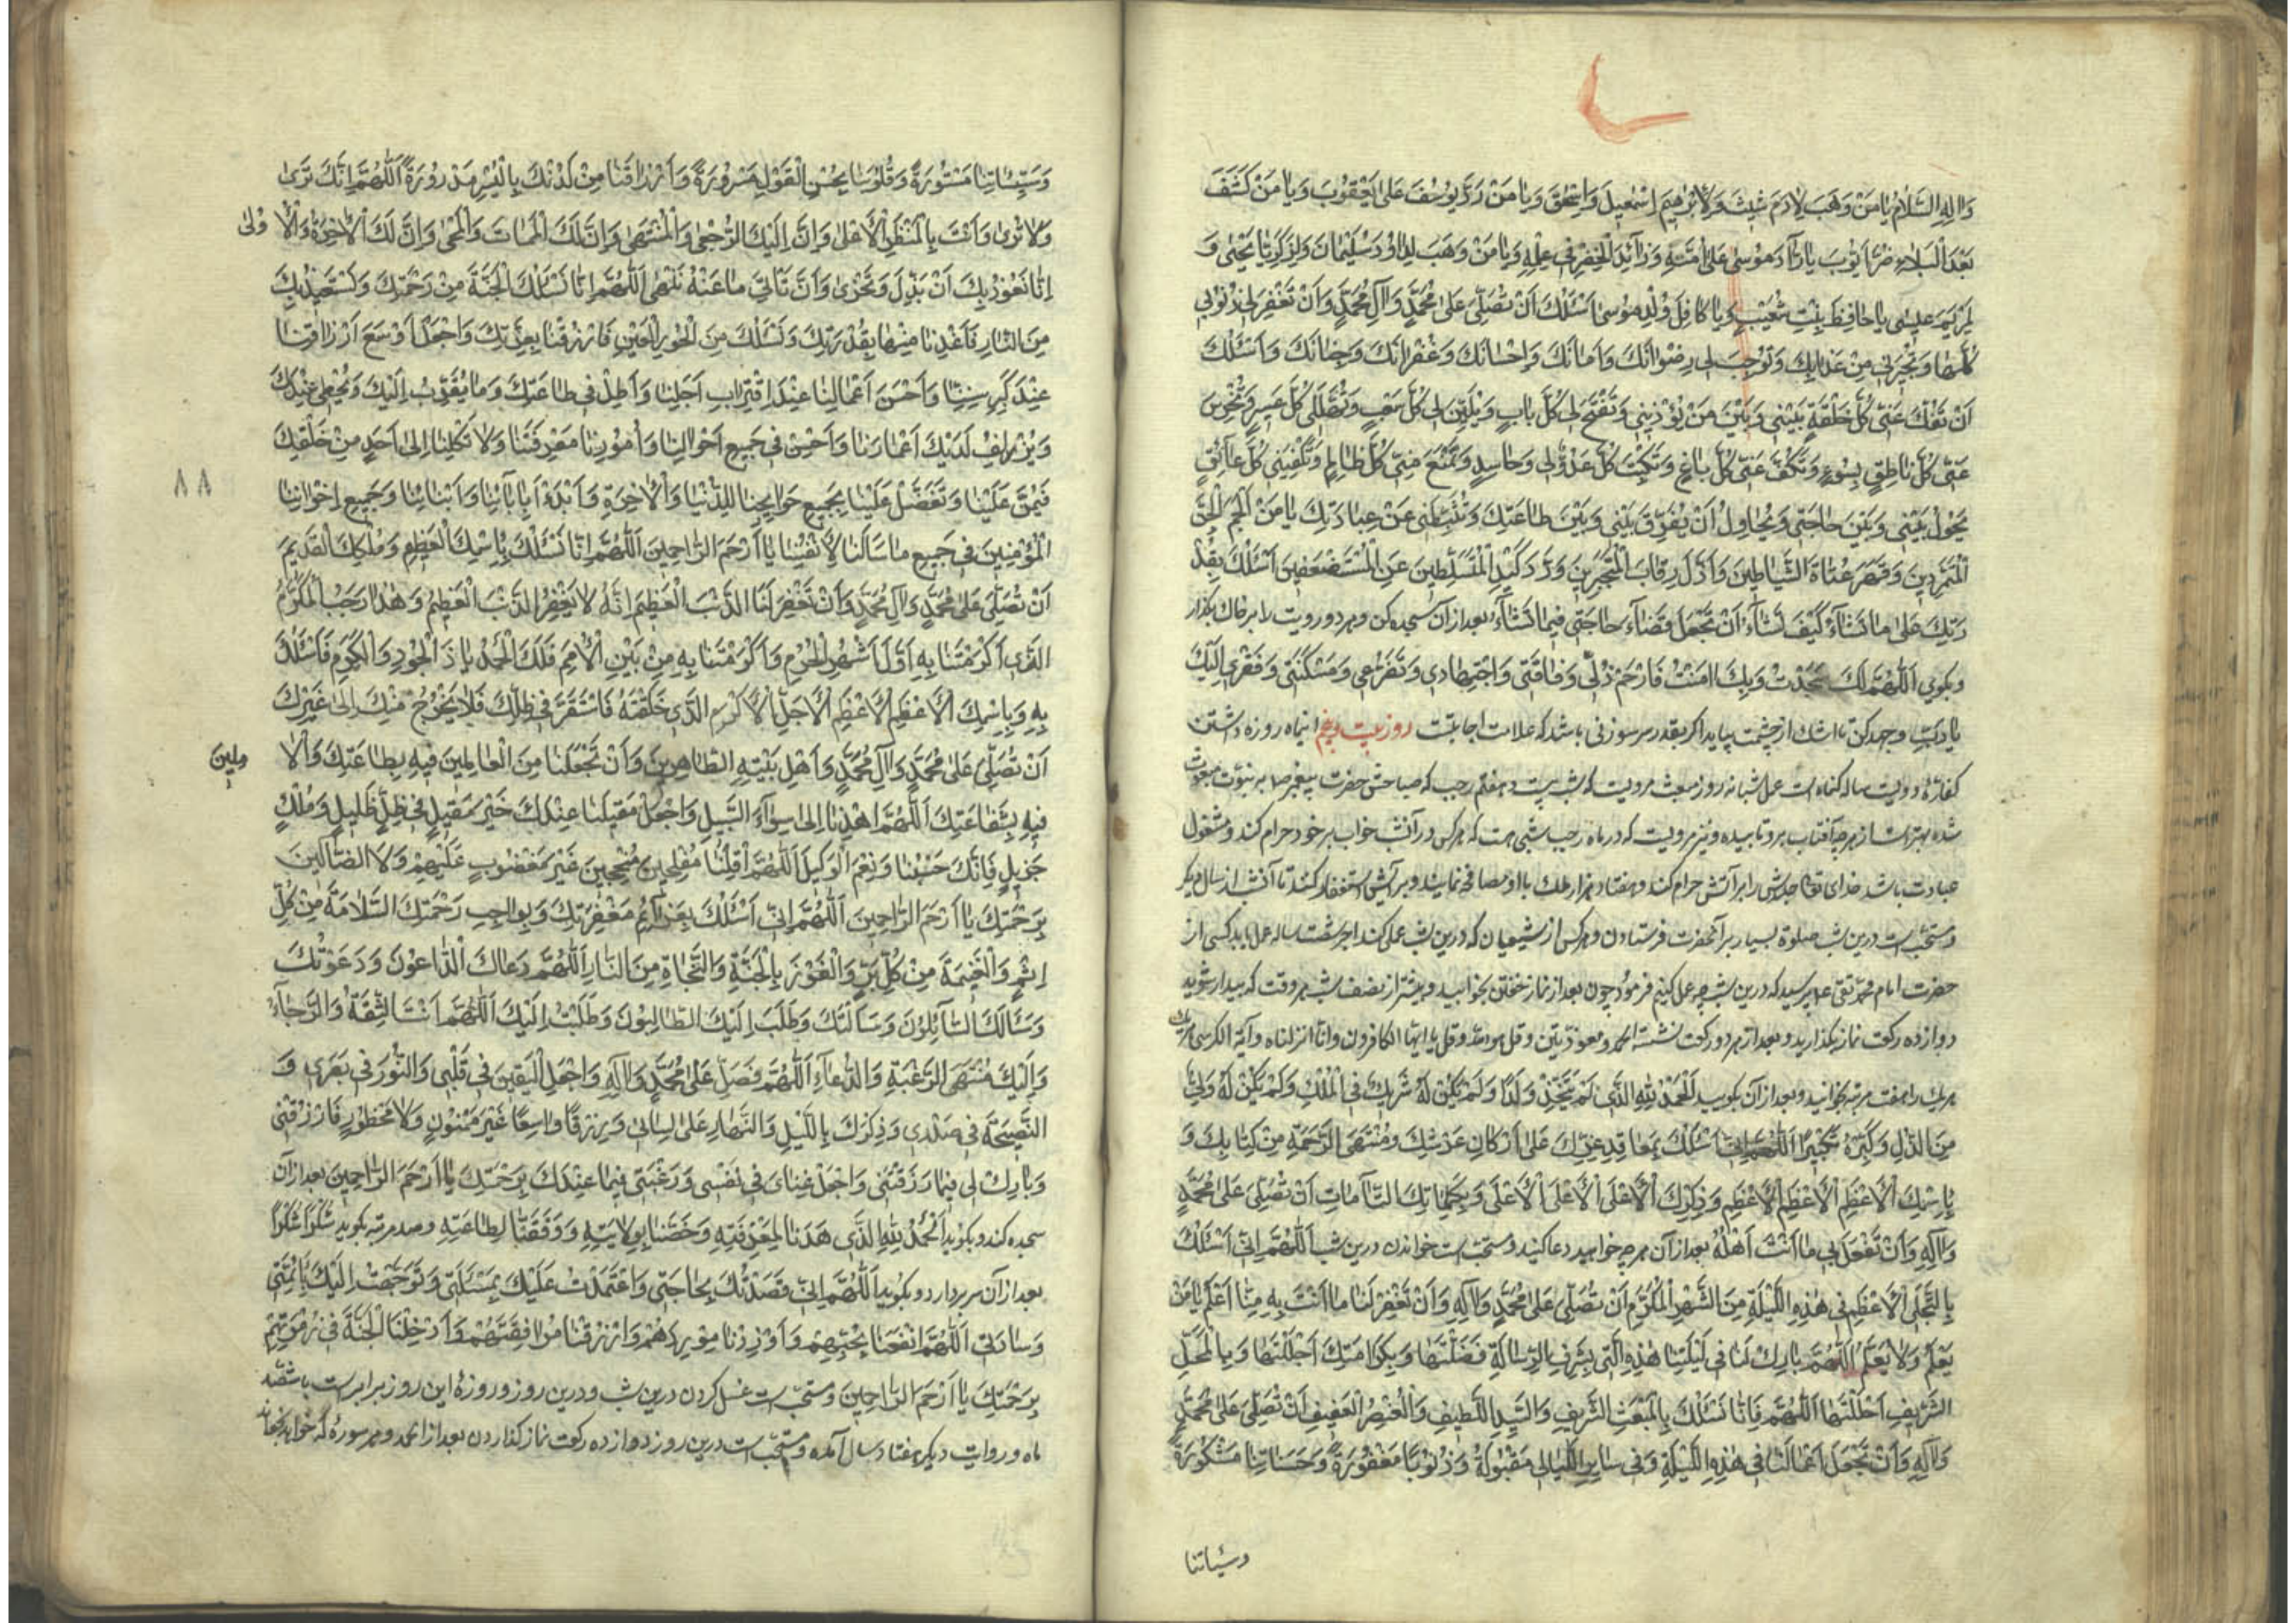 وَاٰلِهِ السَّلٰامُ يٰا مَنْ وَهَبَ لِاٰدَمَ شِيثَ وَلِاِبْرٰهِيمَ اِسْمٰعِيلَ وَاِسْحٰقَ وَيٰا مَنْ رَدَّ يُوسُفَ عَلىٰ يَعْقُوبَ وَيٰا مَنْ كَشَفَ
بَعْدَ الْبَلٰاءِ ضُرَّ اَيُّوبَ يٰا رٰادَّ مُوسىٰ عَلىٰ اُمِّهِ وَزٰائِدَ الْخِضْرِ فِي عِلْمِهِ وَيٰا مَنْ وَهَبَ لِدٰاوُدَ سُلَيْمٰانَ وَلِزَكَرِيّٰا يَحْيىٰ وَ
لِمَرْيَمَ عِيسىٰ يٰا حٰافِظَ بِنْتِ شُعَيْبٍ وَيٰا كٰافِلَ وُلْدِ مُوسىٰ اَسْئَلُكَ اَنْ تُصَلِّيَ عَلىٰ مُحَمَّدٍ وَاٰلِ مُحَمَّدٍ وَاَنْ تَغْفِرَ لِي ذُنُوبِي
كُلَّهٰا وَتُجِيرَنِي مِنْ عَذٰابِكَ وَتُوجِبَ لِي رِضْوٰانَكَ وَاَمٰانَكَ وَاِحْسٰانَكَ وَغُفْرٰانَكَ وَجِنٰانَكَ وَاَسْئَلُكَ
اَنْ تَفُكَّ عَنِّي كُلَّ حَلْقَةٍ بَيْنِي وَبَيْنَ مَنْ يُؤْذِينِي وَتَفْتَحَ لِي كُلَّ بٰابٍ وَتُلَيِّنَ لِي كُلَّ صَعْبٍ وَتُسَهِّلَ لِي كُلَّ عَسِيرٍ وَتُخْرِسَ
عَنِّي كُلَّ نٰاطِقٍ بِسُوءٍ وَتَكُفَّ عَنِّي كُلَّ بٰاغٍ وَتَكْبِتَ كُلَّ عَدُوٍّ لِي وَحٰاسِدٍ وَتَمْنَعَ مِنِّي كُلَّ ظٰالِمٍ وَتَكْفِيَنِي كُلَّ عٰائِقٍ
يَحُولُ بَيْنِي وَبَيْنَ حٰاجَتِي وَيُحٰاوِلُ اَنْ يُفَرِّقَ بَيْنِي وَبَيْنَ طٰاعَتِكَ وَيُثَبِّطَنِي عَنْ عِبٰادَتِكَ يٰا مَنْ اَلْجَمَ الْجِنَّ
الْمُتَمَرِّدِينَ وَقَهَرَ عُتٰاةَ الشَّيٰاطِينِ وَاَذَلَّ رِقٰابَ الْمُتَجَبِّرِينَ وَرَدَّ كَيْدَ الْمُتَسَلِّطِينَ عَنِ الْمُسْتَضْعَفِينَ اَسْئَلُكَ بِقُدْ
رَتِكَ عَلىٰ مٰا تَشٰاءُ كَيْفَ تَشٰاءُ اَنْ تَجْعَلَ قَضٰاءَ حٰاجَتِي فِيمٰا تَشٰاءُ بعد از آن سجده كن و هر دو رويت را بر خاك بگذار
وبگوى اَللّٰهُمَّ لَكَ سَجَدْتُ وَبِكَ اٰمَنْتُ فَارْحَمْ ذُلِّي وَفٰاقَتِي وَاجْتِهٰادِي وَتَضَرُّعِي وَمَسْكَنَتِي وَفَقْرِي اِلَيْكَ
يٰا رَبِّ وجهد كن تا اشك از چشمت بيايد اگر بقدر سر سوزنى باشد كه علامت اجابتست روز بيست و پنجم اين ماه روزه داشتن
كفارهٔ دويست ساله گناه است عمل شبانه روز مبعث مرويست كه شب بيست و هفتم رجب كه صباحش حضرت پيغمبر ص به نبوت مبعوث
شده بهتر است از هر چه آفتاب برو تابيده ونيز مرويست كه در ماه رجب شبى هست كه هر كس در آن شب خواب بر خود حرام كند و مشغول
عبادت باشد خداى تعالى جسدش را بر آتش حرام كند و هفتاد هزار ملك با او مصافحه نمايند و برايش استغفار كنند تا آن شب از سال ديگر
و مستحب است درين شب صلوة بسيار بر آنحضرت فرستادن و هر كس از شيعيان كه درين شب عملى كند اجر شصت ساله عمل يابد كسى از
حضرت امام محمد تقى ع پرسيد كه درين شب چه عمل كنيم فرمود چون بعد از نماز خفتن بخوابيد و پيشتر از نصف شب هر وقت كه بيدار شويد
دوازده ركعت نماز بگذاريد و بعد از هر دو ركعت نشسته الحمد و معوذتين و قل هو الله و قل يا ايها الكافرون و انا انزلناه و آية الكرسى هر يك
هر يك را هفت مرتبه بخوانيد و بعد از آن بگوييد اَلْحَمْدُ لِلّٰهِ الَّذِي لَمْ يَتَّخِذْ وَلَدًا وَلَمْ يَكُنْ لَهُ شَرِيكٌ فِي الْمُلْكِ وَلَمْ يَكُنْ لَهُ وَلِيٌّ
مِنَ الذُّلِّ وَكَبِّرْهُ تَكْبِيرًا اَللّٰهُمَّ اِنِّي اَسْئَلُكَ بِمَعٰاقِدِ عِزِّكَ عَلىٰ اَرْكٰانِ عَرْشِكَ وَمُنْتَهَى الرَّحْمَةِ مِنْ كِتٰابِكَ وَ
بِاسْمِكَ الْاَعْظَمِ الْاَعْظَمِ الْاَعْظَمِ وَذِكْرِكَ الْاَعْلَى الْاَعْلَى الْاَعْلَى وَبِكَلِمٰاتِكَ التّٰامّٰاتِ اَنْ تُصَلِّيَ عَلىٰ مُحَمَّدٍ
وَاٰلِهِ وَاَنْ تَفْعَلَ بِي مٰا اَنْتَ اَهْلُهُ بعد از آن هر چه خواهيد دعا كنيد و مستحب است خواندن درين شب اَللّٰهُمَّ اِنِّي اَسْئَلُكَ
بِالتَّجَلِّي الْاَعْظَمِ فِي هٰذِهِ اللَّيْلَةِ مِنَ الشَّهْرِ الْمُكَرَّمِ اَنْ تُصَلِّيَ عَلىٰ مُحَمَّدٍ وَاٰلِهِ وَاَنْ تَغْفِرَ لَنٰا مٰا اَنْتَ بِهِ مِنّٰا اَعْلَمُ يٰا مَنْ
يَعْلَمُ وَلٰا يَعْلَمُ اَللّٰهُمَّ بٰارِكْ لَنٰا فِي لَيْلَتِنٰا هٰذِهِ الَّتِي بِشَرَفِ الرِّسٰالَةِ فَضَّلْتَهٰا وَبِكَرٰامَتِكَ اَجْلَلْتَهٰا وَبِالْمَحَلِّ
الشَّرِيفِ اَحْلَلْتَهٰا اَللّٰهُمَّ فَاِنّٰا نَسْئَلُكَ بِالْمَبْعَثِ الشَّرِيفِ وَالسَّيِّدِ اللَّطِيفِ وَالْعُنْصُرِ الْعَفِيفِ اَنْ تُصَلِّيَ عَلىٰ مُحَمَّدٍ
وَاٰلِهِ وَاَنْ تَجْعَلَ اَعْمٰالَنٰا فِي هٰذِهِ اللَّيْلَةِ وَفِي سٰايِرِ اللَّيٰالِي مَقْبُولَةً وَذُنُوبَنٰا مَغْفُورَةً وَحَسَنٰاتِنٰا مَشْكُورَةً
وسيئاتنا
وَسَيِّئٰاتِنٰا مَسْتُورَةً وَقُلُوبَنٰا بِحُسْنِ الْقَوْلِ مَسْرُورَةً وَاَرْزٰاقَنٰا مِنْ لَدُنْكَ بِالْيُسْرِ مَدْرُورَةً اَللّٰهُمَّ اِنَّكَ تَرىٰ
وَلٰا تُرىٰ وَاَنْتَ بِالْمَنْظَرِ الْاَعْلىٰ وَاِنَّ اِلَيْكَ الرُّجْعىٰ وَالْمُنْتَهىٰ وَاِنَّ لَكَ الْمَمٰاتَ وَالْمَحْيٰى وَاِنَّ لَكَ الْاٰخِرَةَ وَالْاُ وْلىٰ
اِنّٰا نَعُوذُ بِكَ اَنْ نَذِلَّ وَنَخْزىٰ وَاَنْ نَأْتِيَ مٰا عَنْهُ تَنْهىٰ اَللّٰهُمَّ اِنّٰا نَسْئَلُكَ الْجَنَّةَ مِنْ رَحْمَتِكَ وَنَسْتَعِيذُ بِكَ
مِنَ النّٰارِ فَاَعِذْنٰا مِنْهٰا بِقُدْرَتِكَ وَنَسْئَلُكَ مِنَ الْحُورِ الْعِينِ فَارْزُقْنٰا بِعِزَّتِكَ وَاجْعَلْ اَوْسَعَ اَرْزٰاقِنٰا
عِنْدَ كِبَرِ سِنِّنٰا وَاَحْسَنَ اَعْمٰالِنٰا عِنْدَ اقْتِرٰابِ اٰجٰالِنٰا وَاَطِلْ فِي طٰاعَتِكَ وَمٰا يُقَرِّبُ اِلَيْكَ وَيُحْظِي عِنْدَكَ
وَيُزْلِفُ لَدَيْكَ اَعْمٰارَنٰا وَاَحْسِنْ فِي جَمِيعِ اَحْوٰالِنٰا وَاُمُورِنٰا مَعْرِفَتَنٰا وَلٰا تَكِلْنٰا اِلىٰ اَحَدٍ مِنْ خَلْقِكَ
٨٨
فَيَمُنَّ عَلَيْنٰا وَتَفَضَّلْ عَلَيْنٰا بِجَمِيعِ حَوٰايِجِنٰا لِلدُّنْيٰا وَالْاٰخِرَةِ وَابْدَءْ بِاٰبٰائِنٰا وَاَبْنٰائِنٰا وَجَمِيعِ اِخْوٰانِنٰا
الْمُؤْمِنِينَ فِي جَمِيعِ مٰا سَاَلْنٰا لِاَنْفُسِنٰا يٰا اَرْحَمَ الرّٰاحِمِينَ اَللّٰهُمَّ اِنّٰا نَسْئَلُكَ بِاسْمِكَ الْعَظِيمِ وَمُلْكِكَ الْقَدِيمِ
اَنْ تُصَلِّيَ عَلىٰ مُحَمَّدٍ وَاٰلِ مُحَمَّدٍ وَاَنْ تَغْفِرَ لَنَا الذَّنْبَ الْعَظِيمَ اِنَّهُ لٰا يَغْفِرُ الذَّنْبَ الْعَظِيمَ وَهٰذٰا رَجَبٌ الْمُكَرَّمُ
الَّذِي اَكْرَمْتَنٰا بِهِ اَوَّلُ اَشْهُرِ الْحُرُمِ وَاَكْرَمْتَنٰا بِهِ مِنْ بَيْنِ الْاُمَمِ فَلَكَ الْحَمْدُ يٰا ذَا الْجُودِ وَالْكَرَمِ فَاَسْئَلُكَ
بِهِ وَبِاسْمِكَ الْاَعْظَمِ الْاَعْظَمِ الْاَعْظَمِ الْاَجَلِّ الْاَكْرَمِ الَّذِي خَلَقْتَهُ فَاسْتَقَرَّ فِي ظِلِّكَ فَلٰا يَخْرُجُ مِنْكَ اِلىٰ غَيْرِكَ
اَنْ تُصَلِّيَ عَلىٰ مُحَمَّدٍ وَاٰلِ مُحَمَّدٍ وَاَهْلِ بَيْتِهِ الطّٰاهِرِينَ وَاَنْ تَجْعَلَنٰا مِنَ الْعٰامِلِينَ فِيهِ بِطٰاعَتِكَ وَالْاٰ مِلِينَ
فِيهِ بِشَفٰاعَتِكَ اَللّٰهُمَّ اهْدِنٰا اِلىٰ سَوٰاءِ السَّبِيلِ وَاجْعَلْ مَقِيلَنٰا عِنْدَكَ خَيْرَ مَقِيلٍ فِي ظِلٍّ ظَلِيلٍ وَمُلْكٍ
جَزِيلٍ فَاِنَّكَ حَسْبُنٰا وَنِعْمَ الْوَكِيلُ اَللّٰهُمَّ اقْلِبْنٰا مُفْلِحِينَ مُنْجِحِينَ غَيْرَ مَغْضُوبٍ عَلَيْهِمْ وَلَا الضّٰالِّينَ
بِرَحْمَتِكَ يٰا اَرْحَمَ الرّٰاحِمِينَ اَللّٰهُمَّ اِنِّي اَسْئَلُكَ بِعَزٰائِمِ مَغْفِرَتِكَ وَبِوٰاجِبِ رَحْمَتِكَ السَّلٰامَةَ مِنْ كُلِّ
اِثْمٍ وَالْغَنِيمَةَ مِنْ كُلِّ بِرٍّ وَالْفَوْزَ بِالْجَنَّةِ وَالنَّجٰاةِ مِنَ النّٰارِ اَللّٰهُمَّ دَعٰاكَ الدّٰاعُونَ وَدَعَوْتُكَ
وَسَئَلَكَ السّٰائِلُونَ وَسَاَلْتُكَ وَطَلَبَ اِلَيْكَ الطّٰالِبُونَ وَطَلَبْتُ اِلَيْكَ اَللّٰهُمَّ اَنْتَ الثِّقَةُ وَالرَّجٰاءُ
وَاِلَيْكَ مُنْتَهَى الرَّغْبَةِ وَالدُّعٰاءِ اَللّٰهُمَّ فَصَلِّ عَلىٰ مُحَمَّدٍ وَاٰلِهِ وَاجْعَلِ الْيَقِينَ فِي قَلْبِي وَالنُّورَ فِي بَصَرِي وَ
النَّصِيحَةَ فِي صَدْرِي وَذِكْرَكَ بِاللَّيْلِ وَالنَّهٰارِ عَلىٰ لِسٰانِي وَرِزْقًا وٰاسِعًا غَيْرَ مَمْنُونٍ وَلٰا مَحْظُورٍ فَارْزُقْنِي
وَبٰارِكْ لِي فِيمٰا رَزَقْتَنِي وَاجْعَلْ غِنٰايَ فِي نَفْسِي وَرَغْبَتِي فِيمٰا عِنْدَكَ بِرَحْمَتِكَ يٰا اَرْحَمَ الرّٰاحِمِينَ بعد از آن
سجده كند و بگويد اَلْحَمْدُ لِلّٰهِ الَّذِي هَدٰانٰا لِمَعْرِفَتِهِ وَخَصَّنٰا بِوِلٰايَتِهِ وَوَفَّقَنٰا لِطٰاعَتِهِ و صد مرتبه بگويد شُكْرًا شُكْرًا
بعد از آن سر بردارد و بگويد اَللّٰهُمَّ اِنِّي قَصَدْتُكَ بِحٰاجَتِي وَاعْتَمَدْتُ عَلَيْكَ بِمَسْئَلَتِي وَتَوَجَّهْتُ اِلَيْكَ بِاَئِمَّتِي
وَسٰادَتِي اَللّٰهُمَّ انْفَعْنٰا بِحُبِّهِمْ وَاَوْرِدْنٰا مَوْرِدَهُمْ وَارْزُقْنٰا مُرٰافَقَتَهُمْ وَاَدْخِلْنَا الْجَنَّةَ فِي زُمْرَتِهِمْ
بِرَحْمَتِكَ يٰا اَرْحَمَ الرّٰاحِمِينَ و مستحب است غسل كردن درين شب و درين روز و روزهٔ اين روز برابر است با شصت
ماه و روايت ديگر هفتاد سال آمده و مستحب است درين روز دوازده ركعت نماز گذاردن بعد از الحمد و هر سوره كه خواهد بخواند